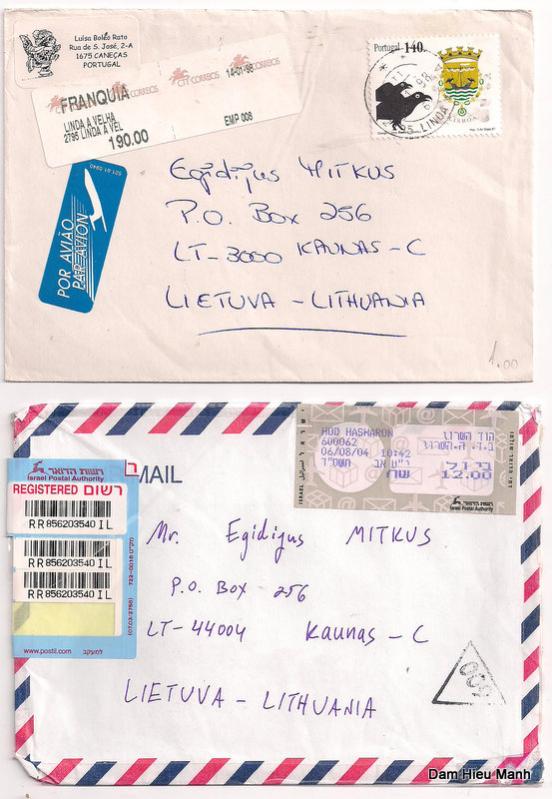 Luísa Boléo Rato
Rua de S. José, 2-A
1675 CANEÇAS
PORTUGAL
CTT CORREIOS
14-01-98
FRANQUIA
LINDA A VELHA
2795 LINDA A VEL
190.00
EMP 006
Portugal 140.
LISBOA
2795 LINDA
POR AVIÃO
PAR AVION
Egidijus MITKUS
P.O. Box 256
LT-3000 KAUNAS-C
LIETUVA-LITHUANIA
1.00
MAIL
רשות הדואר
Israel Postal Authority
REGISTERED רשום
RR 856203540 IL
RR 856203540 IL
RR 856203540 IL
www.postil.com למעקב
HOD HASHARON
600062
06/08/04 10:42
הוד השרון
12.00
Israel Postal Authority
Mr. Egidijus MITKUS
P.O. Box 256
LT-44004 Kaunas-C
LIETUVA-LITHUANIA
900
Dam Hieu Manh